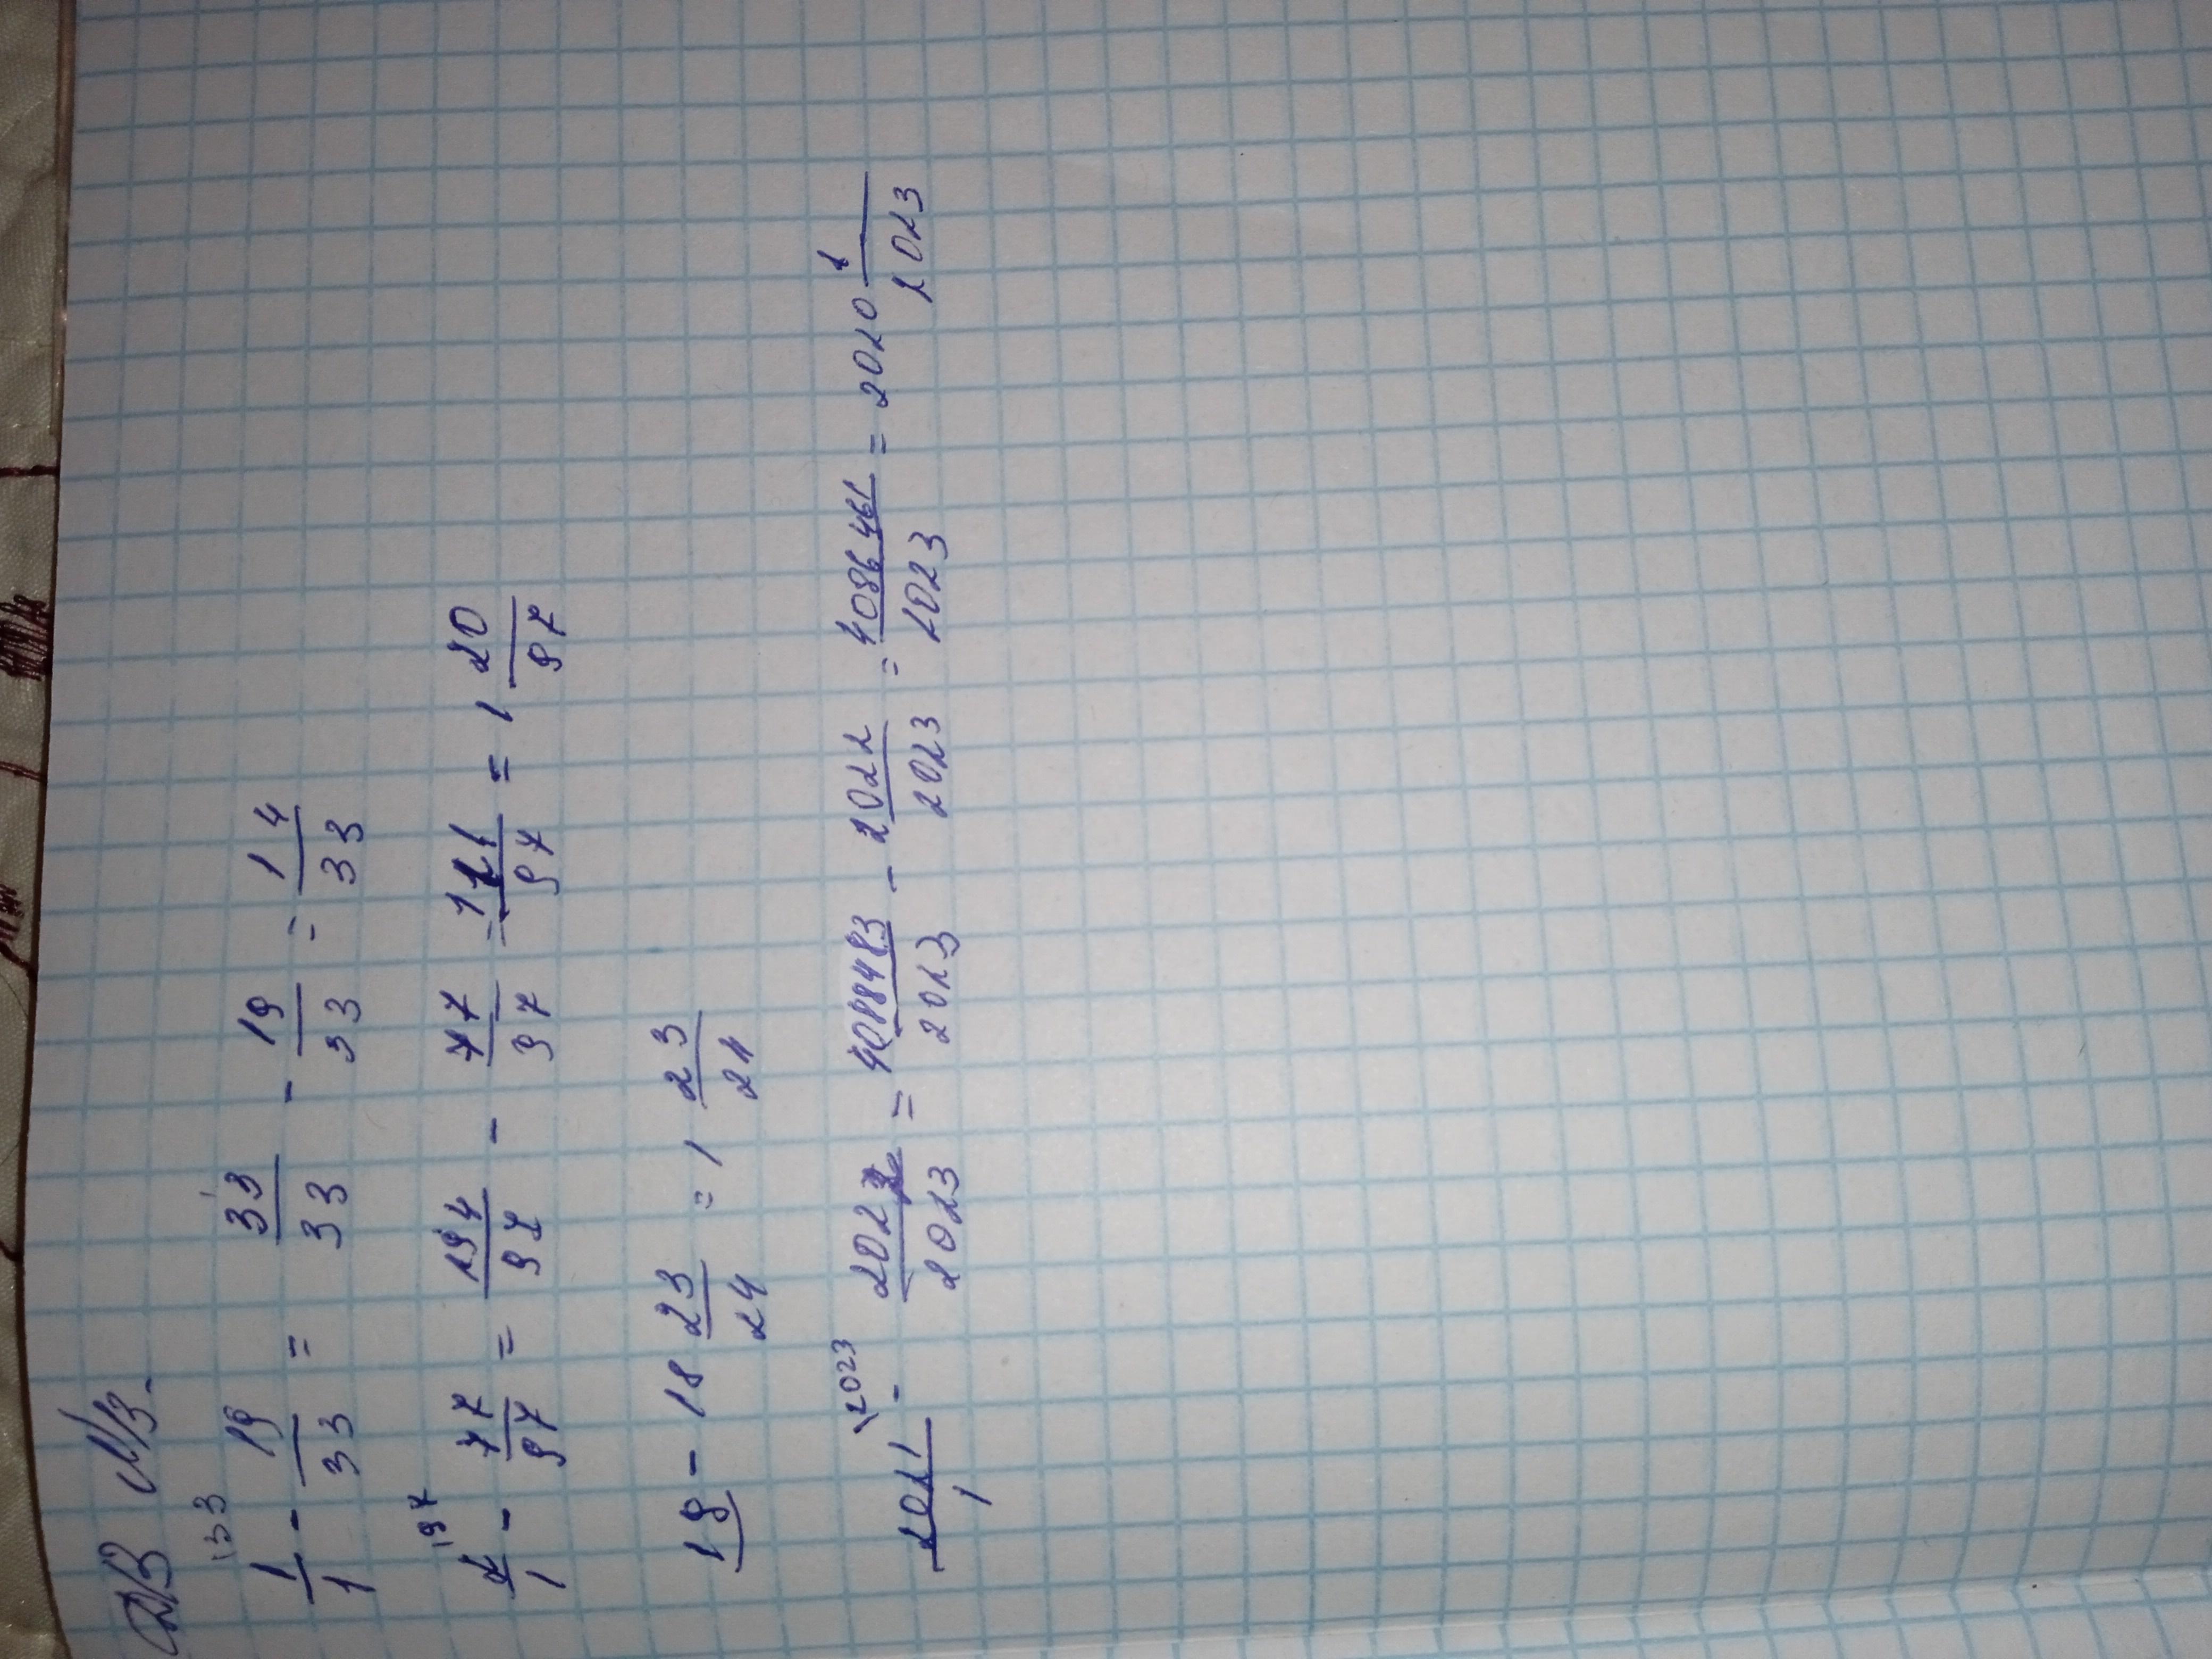 Д/З №3.
1/1 \33 - 19/33 = 33/33 - 19/33 = 14/33
2/1 \97 - 77/97 = 194/97 - 77/97 = 117/97 = 1 20/97
19 - 18 23/24 = 1 23/24
2021/1 \2023 - 2022/2023 = 4088483/2023 - 2022/2023 = 4086461/2023 = 2020 1/2023